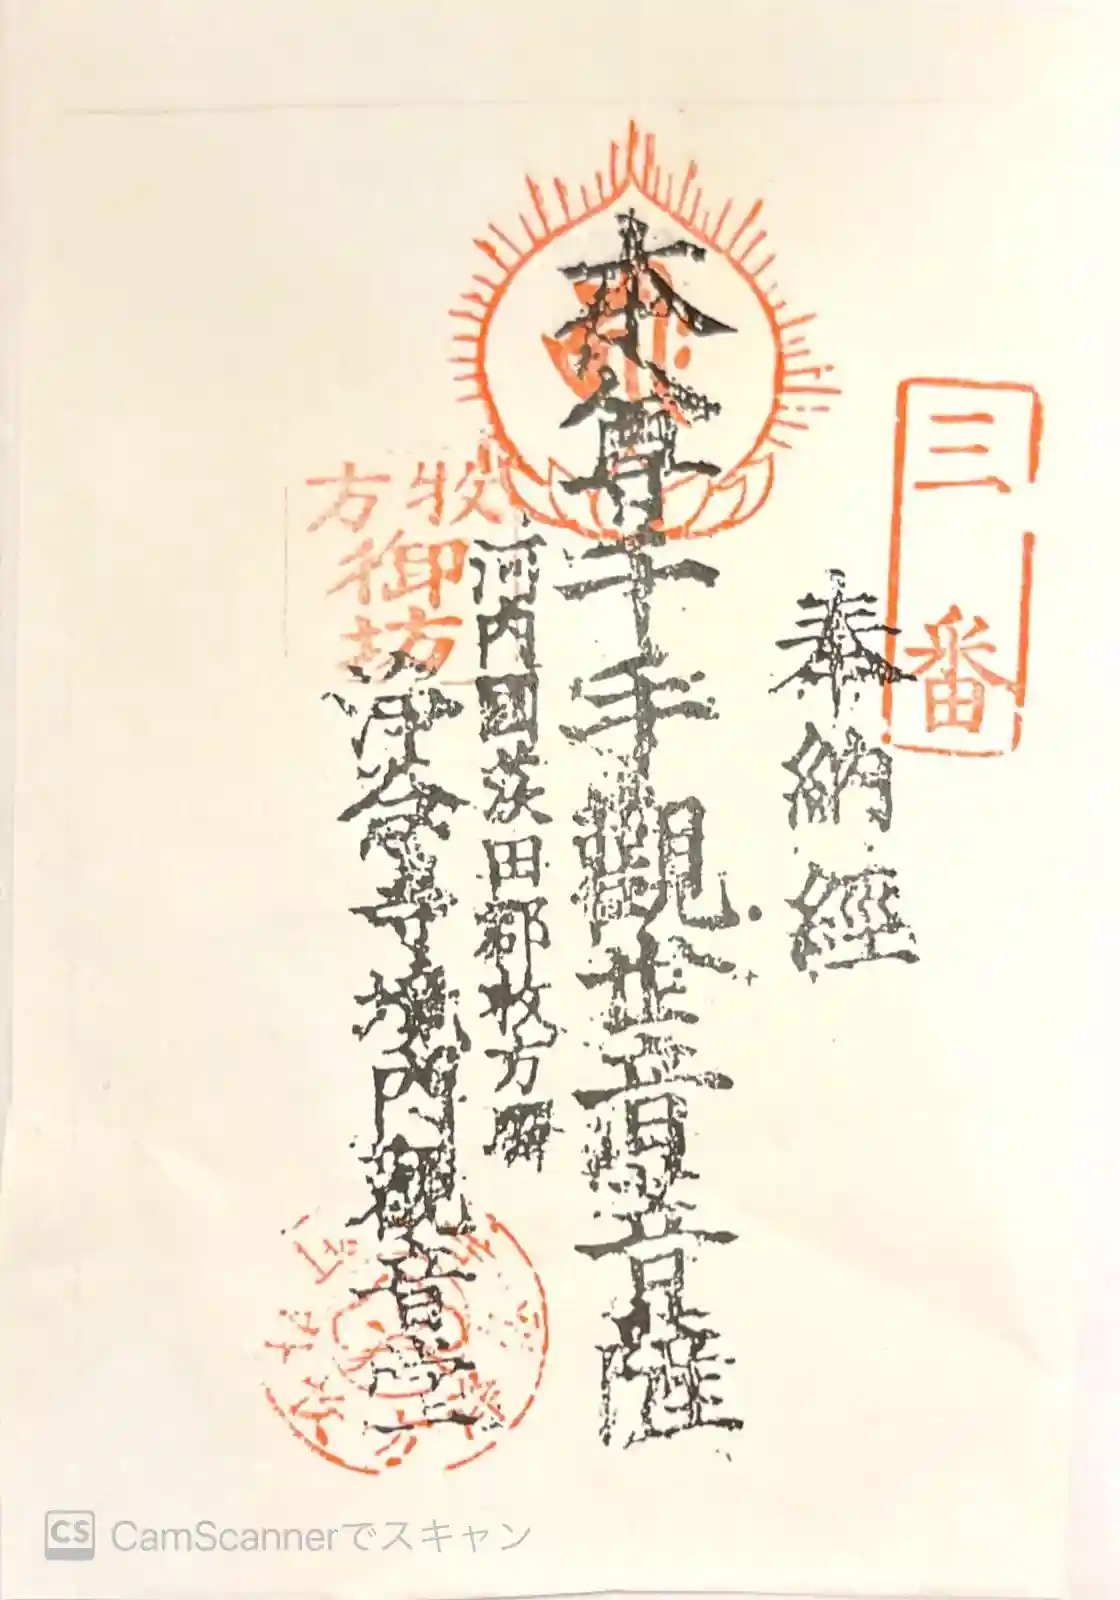 三番
奉納經
本尊千手觀世音菩薩
河内國茨田郡枚方驛
浄念寺境内観音堂
枚方
御坊
CS CamScannerでスキャン